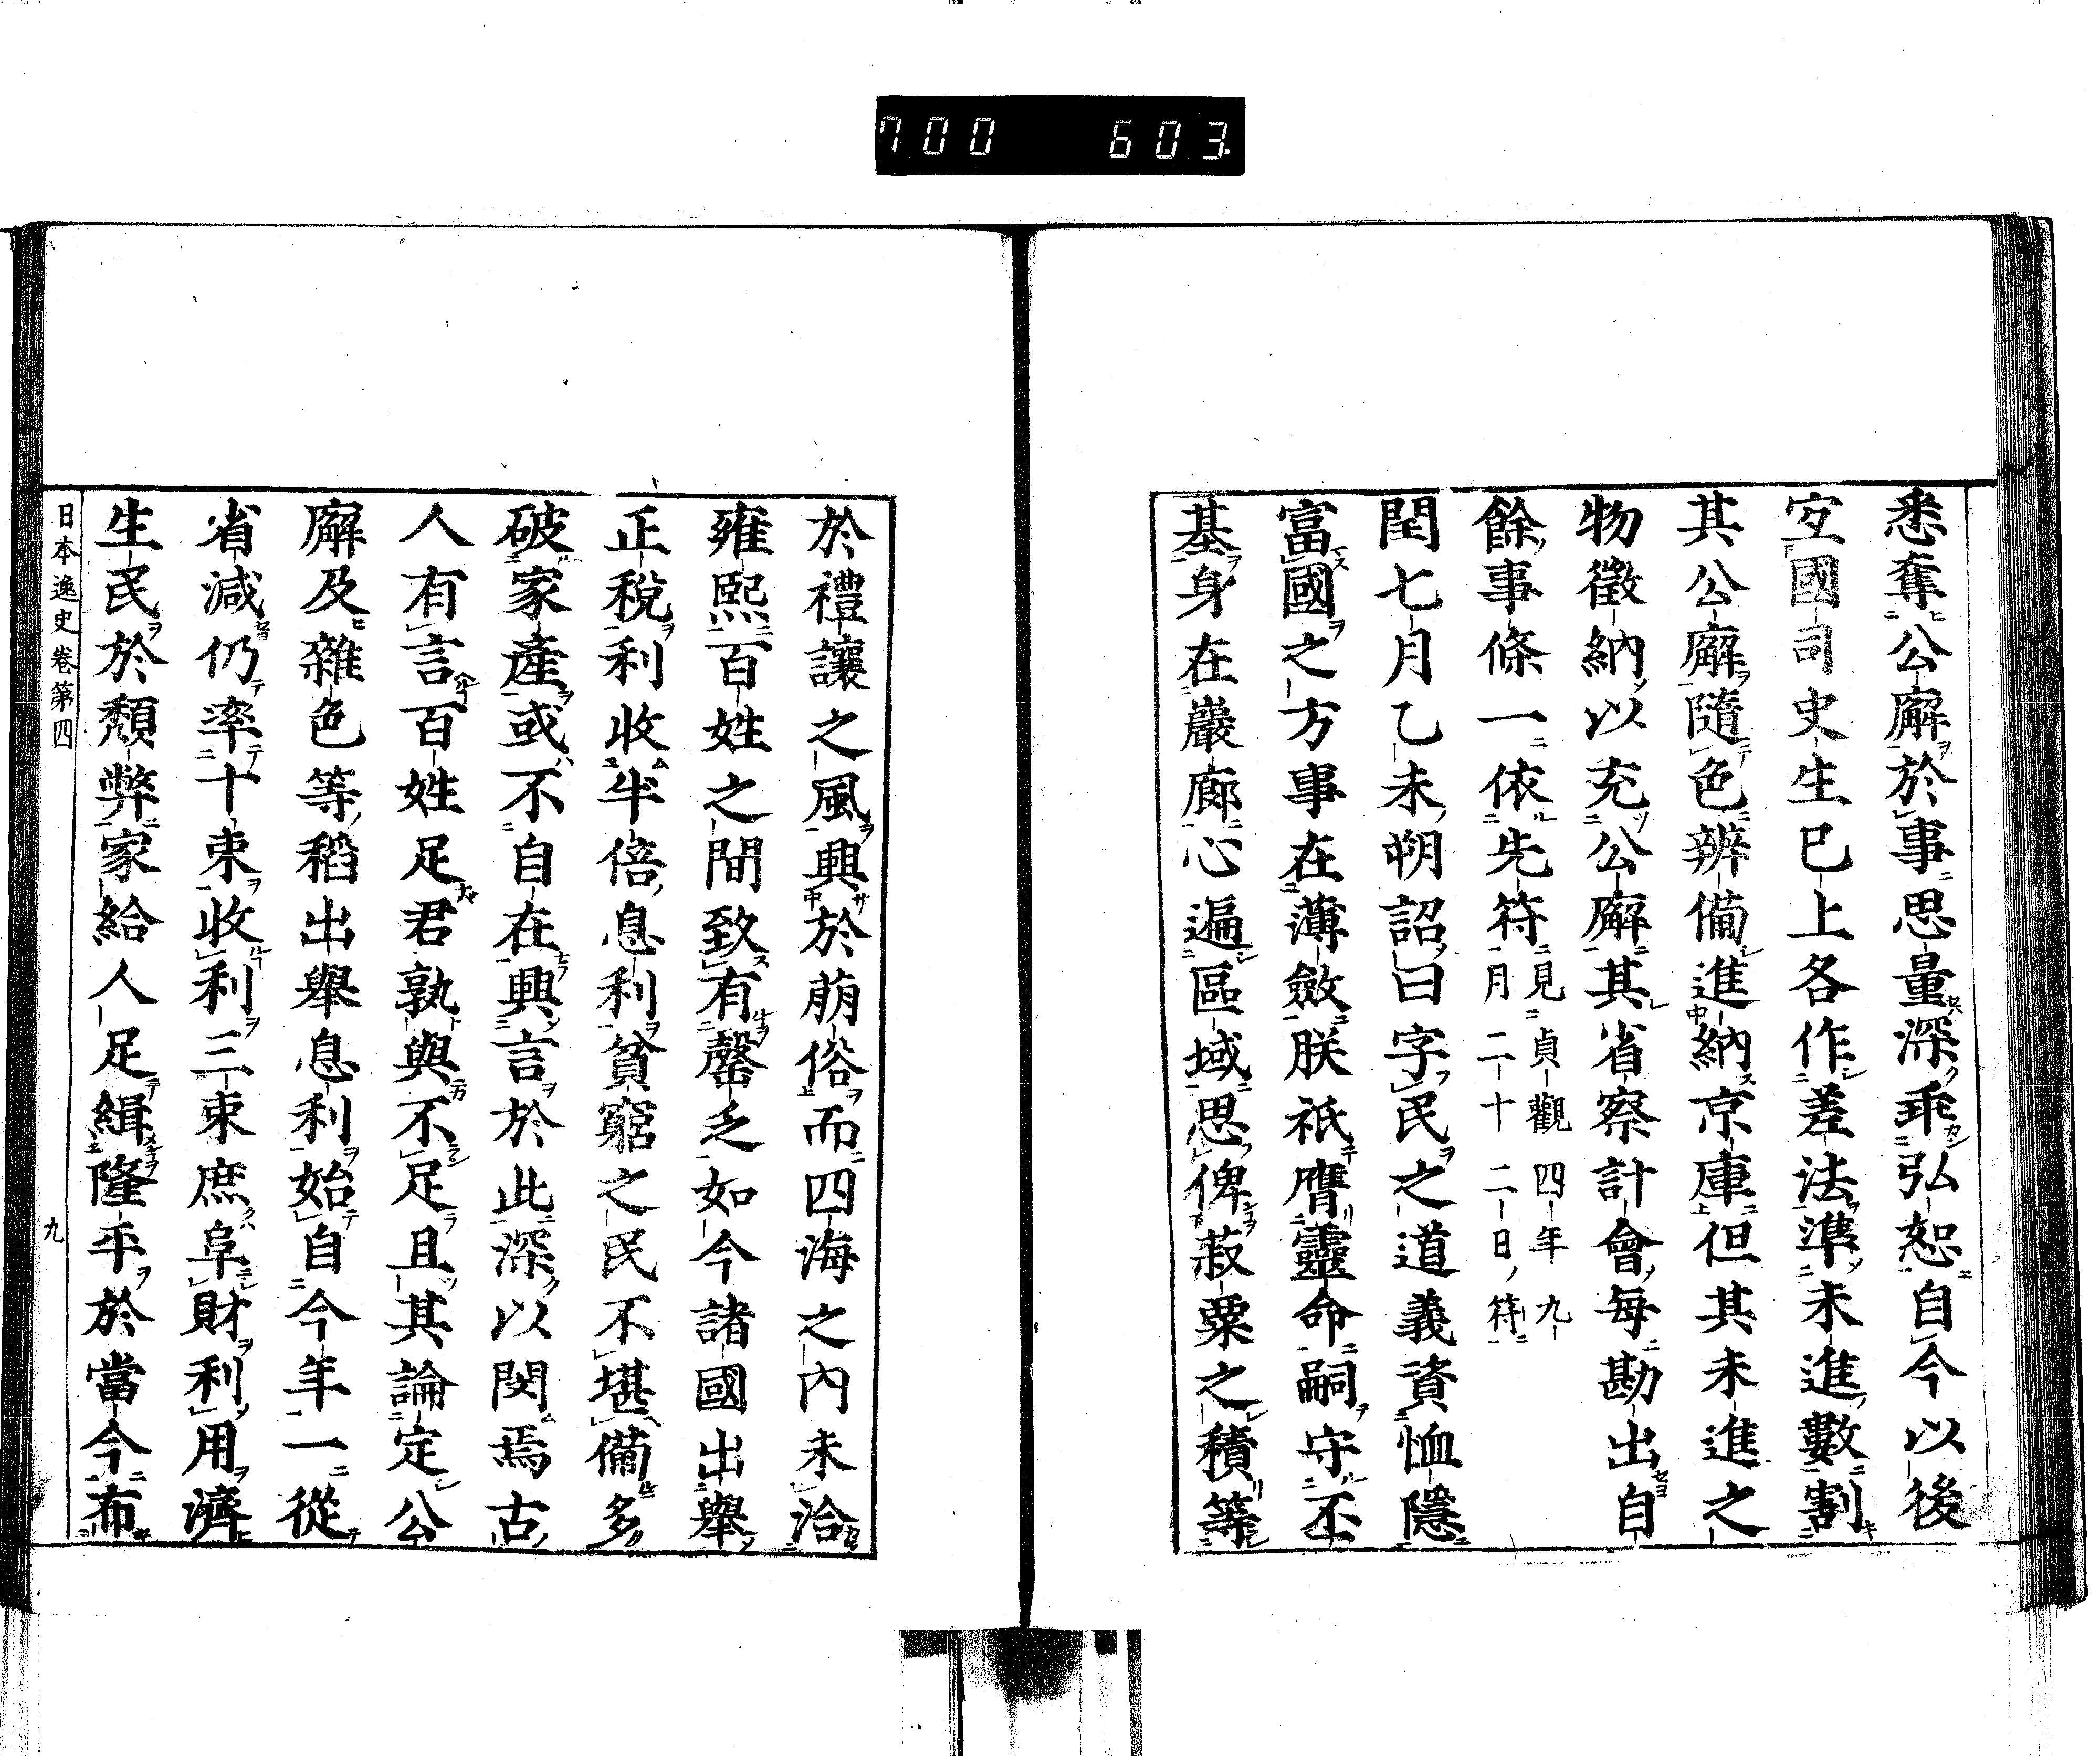 700 603
悉奪公廨於事思量深乖弘恕自今以後
宜國司史生已上各作差法準未進數割
其公廨隨色辨備進納京庫但其未進之
物徵納以充公廨其省察計會每勘出自
餘事條一依先符見貞觀四年九
月二十二日符
閏七月乙未朔詔曰字民之道義資恤隱
富國之方事在薄斂朕祗膺靈命嗣守丕
基身在巖廊心遍區域思俾菽粟之積等
於禮讓之風興於崩俗而四海之內未洽
雍熙百姓之間致有罄乏如今諸國出舉
正稅利收半倍息利貧窮之民不堪備多
破家產或不自在興言於此深以閔焉古
人有言百姓足君孰與不足且其論定公
廨及雜色等稻出舉息利始自今年一從
省減仍率十束收利三束庶阜財利用濟
生民於頽弊家給人足緝隆平於當今布
日本逸史卷第四 九